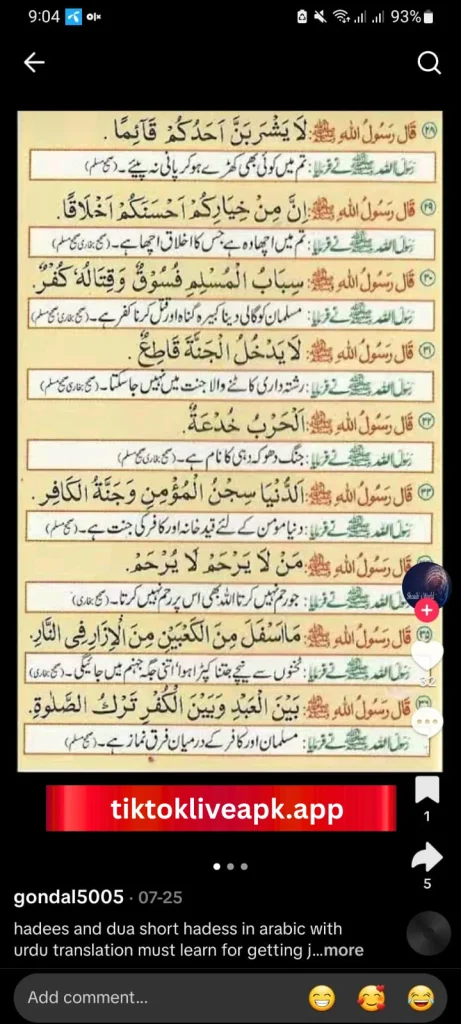 9:04 olx 93%
(۲۸) قَالَ رَسُوْلُ اللهِ ﷺ: لَا يَشْرَبَنَّ اَحَدُكُمْ قَآئِمًا.
رسول اللہ ﷺ نے فرمایا: تم میں کوئی بھی کھڑے ہو کر پانی نہ پیئے۔ (صحیح مسلم)
(۲۹) قَالَ رَسُوْلُ اللهِ ﷺ: اِنَّ مِنْ خِيَارِكُمْ اَحْسَنَكُمْ اَخْلَاقًا.
رسول اللہ ﷺ نے فرمایا: تم میں اچھا وہ ہے جس کا اخلاق اچھا ہے۔ (صحیح بخاری صحیح مسلم)
(۳۰) قَالَ رَسُوْلُ اللهِ ﷺ: سِبَابُ الْمُسْلِمِ فُسُوْقٌ وَقِتَالُهٗ كُفْرٌ.
رسول اللہ ﷺ نے فرمایا: مسلمان کو گالی دینا کبیرہ گناہ اور قتل کرنا کفر ہے۔ (صحیح بخاری صحیح مسلم)
(۳۱) قَالَ رَسُوْلُ اللهِ ﷺ: لَا يَدْخُلُ الْجَنَّةَ قَاطِعٌ.
رسول اللہ ﷺ نے فرمایا: رشتہ داری کاٹنے والا جنت میں نہیں جا سکتا۔ (صحیح بخاری صحیح مسلم)
(۳۲) قَالَ رَسُوْلُ اللهِ ﷺ: اَلْحَرْبُ خُدْعَةٌ.
رسول اللہ ﷺ نے فرمایا: جنگ دھوکہ دہی کا نام ہے۔ (صحیح بخاری صحیح مسلم)
(۳۳) قَالَ رَسُوْلُ اللهِ ﷺ: اَلدُّنْيَا سِجْنُ الْمُؤْمِنِ وَجَنَّةُ الْكَافِرِ.
رسول اللہ ﷺ نے فرمایا: دنیا مومن کے لئے قید خانہ اور کافر کی جنت ہے۔ (صحیح مسلم)
قَالَ رَسُوْلُ اللهِ ﷺ: مَنْ لَا يَرْحَمْ لَا يُرْحَمْ.
رسول اللہ ﷺ نے فرمایا: جو رحم نہیں کرتا اللہ بھی اس پر رحم نہیں کرتا۔ (صحیح بخاری)
(۳۵) قَالَ رَسُوْلُ اللهِ ﷺ: مَا اَسْفَلَ مِنَ الْكَعْبَيْنِ مِنَ الْاِزَارِ فِى النَّارِ.
رسول اللہ ﷺ نے فرمایا: ٹخنوں سے نیچے جتنا کپڑا ہوا، اتنی جگہ جہنم میں جائیگی۔ (صحیح بخاری)
قَالَ رَسُوْلُ اللهِ ﷺ: بَيْنَ الْعَبْدِ وَبَيْنَ الْكُفْرِ تَرْكُ الصَّلٰوةِ.
رسول اللہ ﷺ نے فرمایا: مسلمان اور کافر کے درمیان فرق نماز ہے۔ (صحیح مسلم)
32
tiktokliveapk.app
1
5
gondal5005 · 07-25
hadees and dua short hadess in arabic with
urdu translation must learn for getting j...more
Add comment...